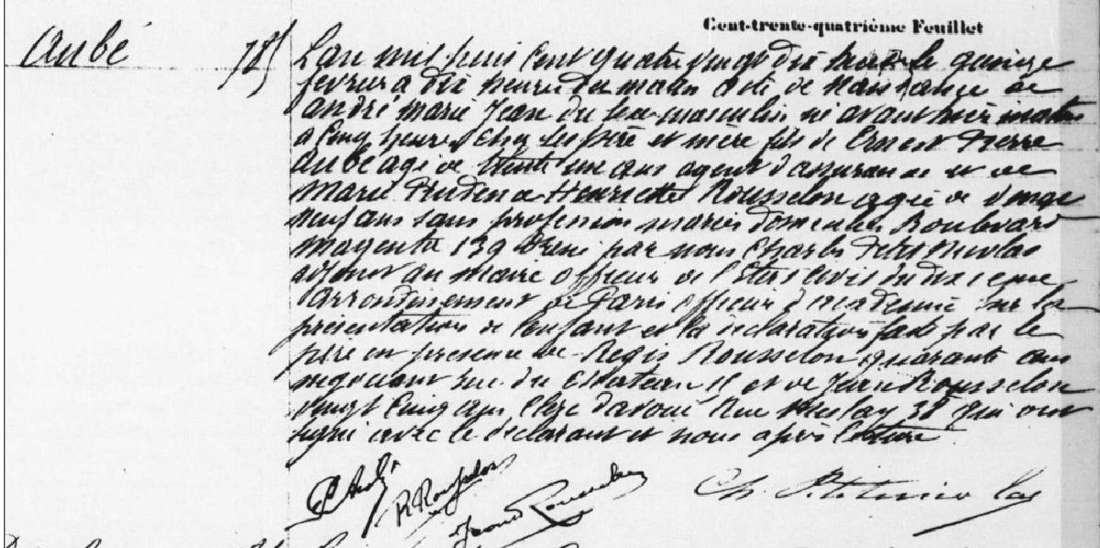 Cent-trente-quatrième Feuillet
Aubé 785 L'an mil huit cent quatre vingt dix le quinze
fevrier a dix heures du matin acte de naissance de
andré marie Jean du sexe masculin né avant hier matin
a cinq heures chez ses père et mère fils de Ernest Pierre
aubé agé de trente un ans agent d'assurances et de
Marie Prudence Henriette Rousselon agée de vingt
neuf ans sans profession mariés domiciliés Boulevard
magenta 139 par nous Charles
adjoint au maire officier de l'Etat civil du dixieme
arrondissement de Paris officier d'academie sur la
présentation de l'enfant et la déclaration faite par le
père en presence de Regis Rousselon quarante ans
négociant rue du Chateau et de Jean Rousselon
vingt cinq ans clerc d'avoué Rue Meslay 38 qui ont
signé avec le déclarant et nous après lecture
R. Rousselon